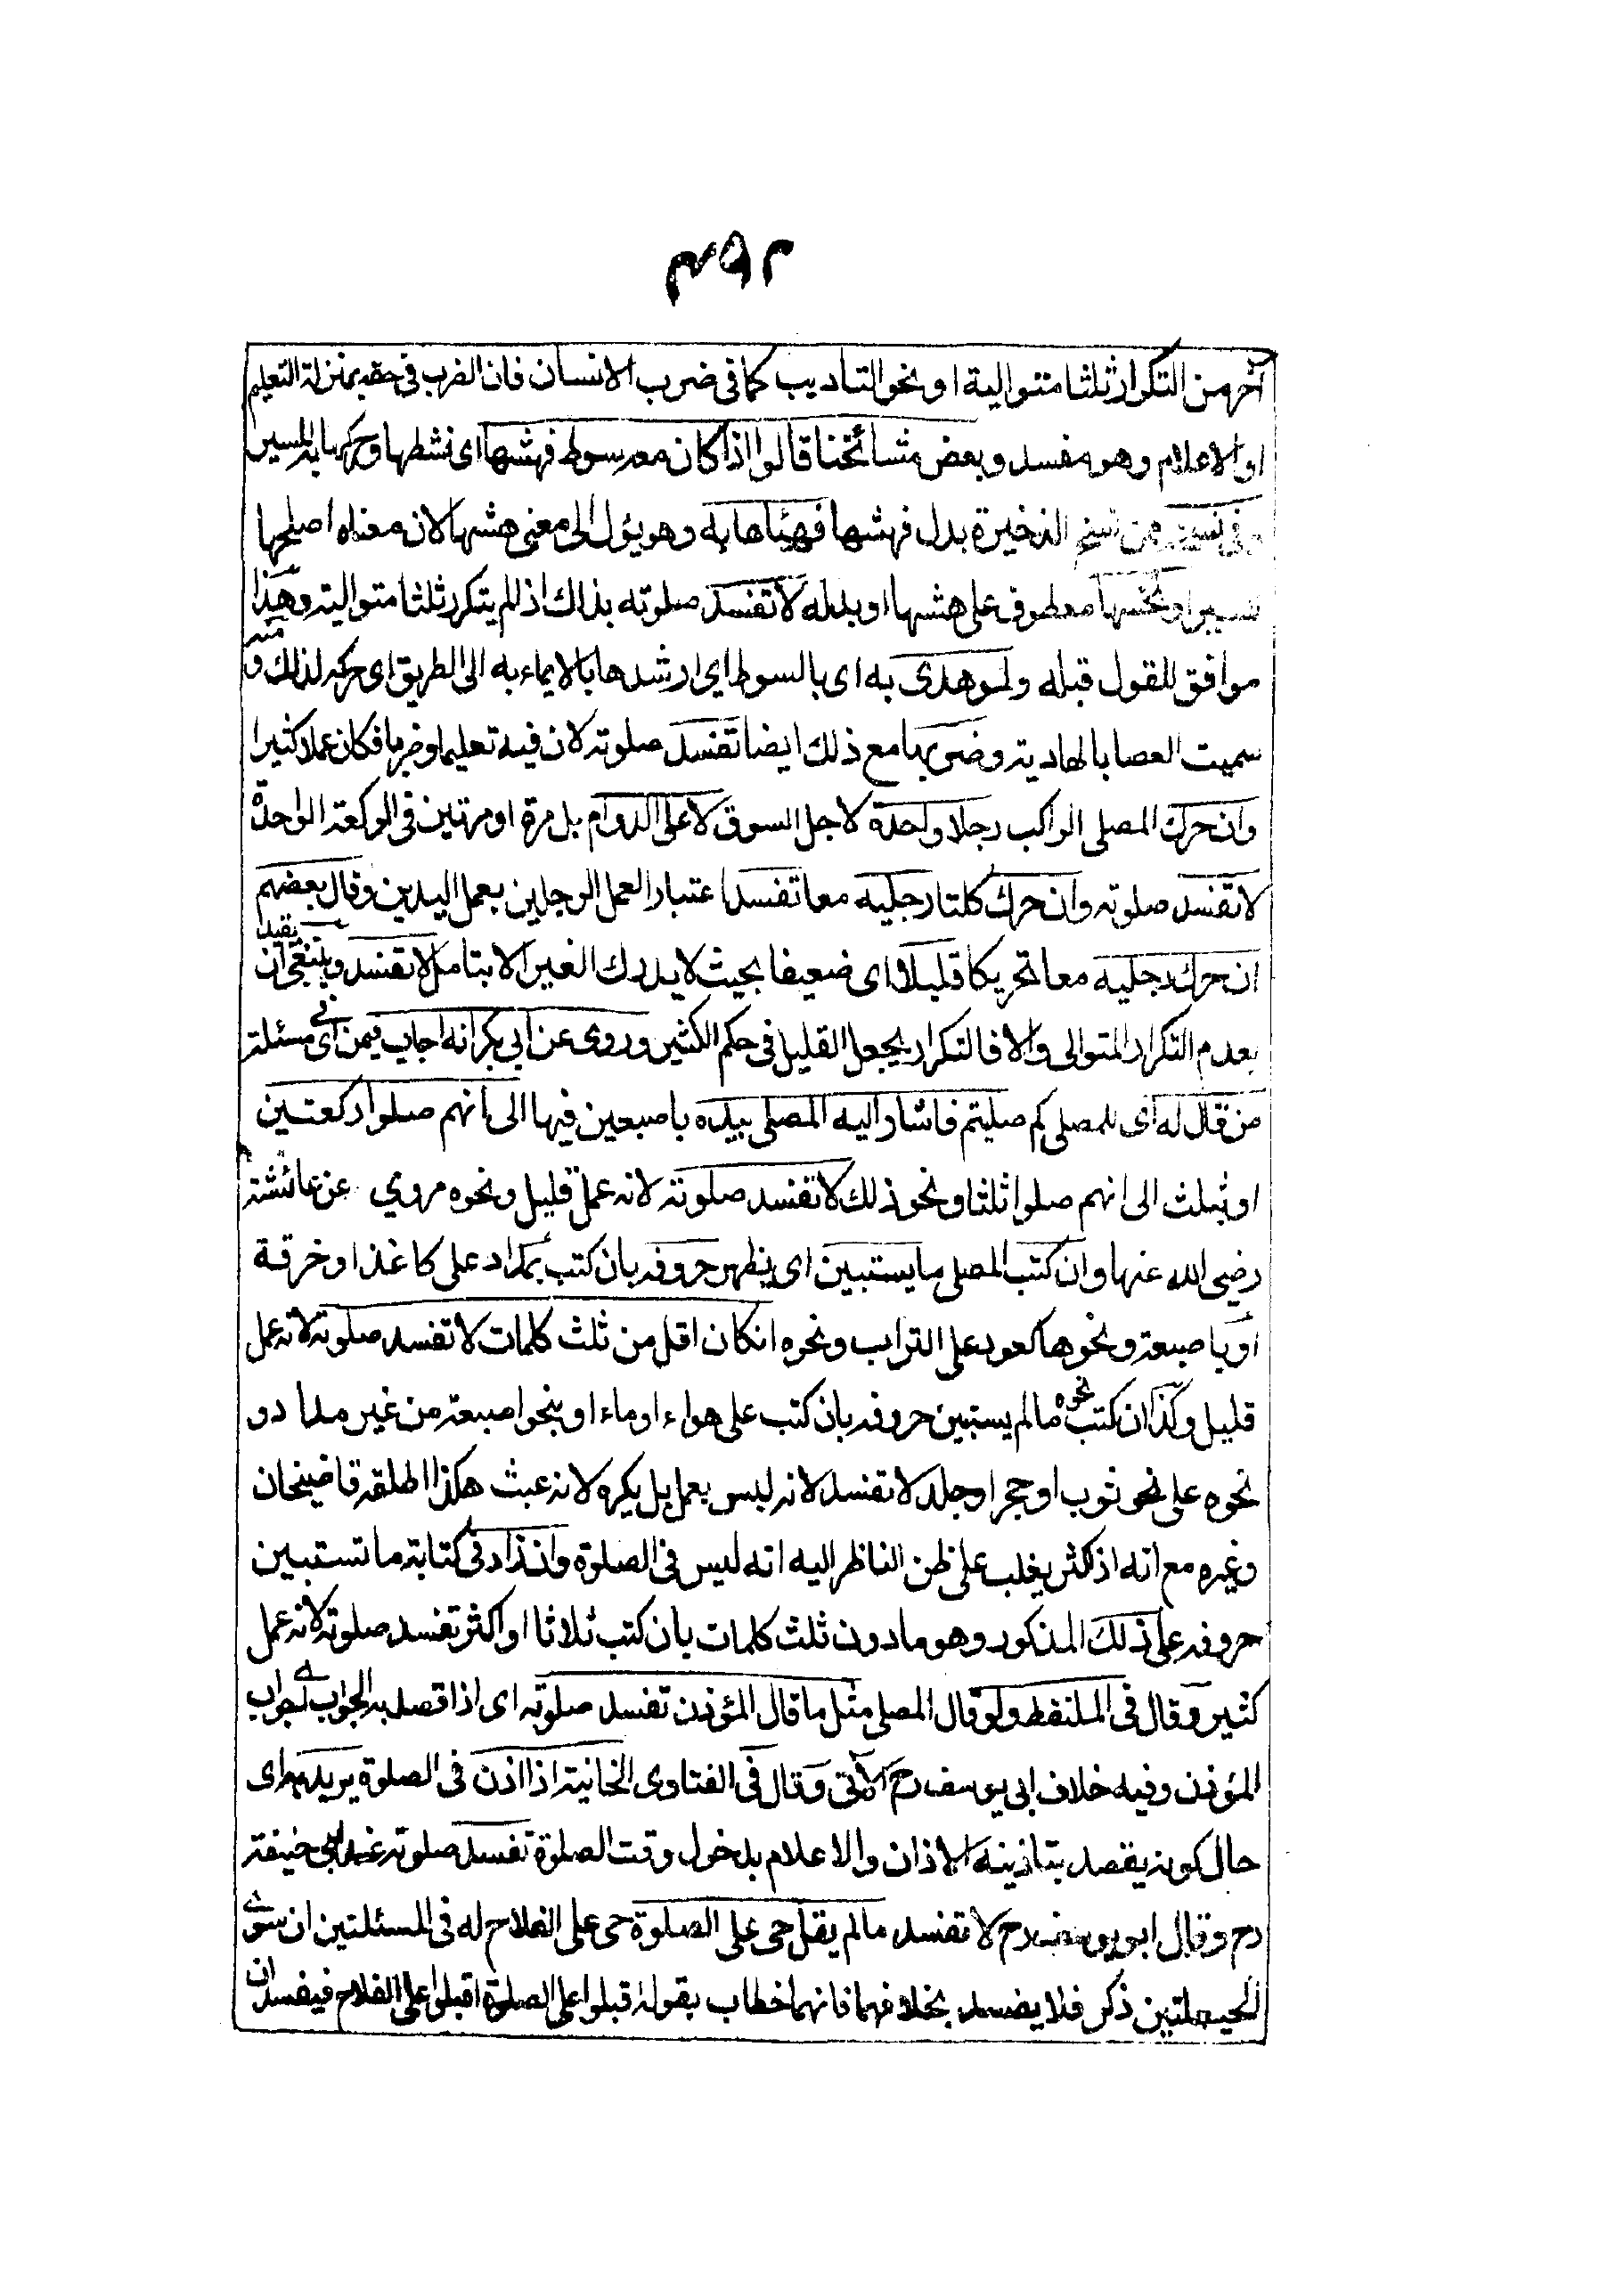 ٣٩٢
آخر من التكرار ثلثا متوالية او نحو التاديب كما فى ضرب الانسان فان الضرب فى حقه بمنزلة التعليم
او الاعلام وهو مفسد وبعض مشائخنا قالوا اذا كان معه سوط فهشها اى نشطها وحركها به للسير
وفى نسخة من نسخ الذخيرة بدل فهشها فهيئاها به وهو يؤل الى معنى هشها لان معناه اصلحها
للسير او نخسها معطوف على هشها او بدله لا تفسد صلوته بذلك اذ لم يتكرر ثلثا متوالية وهذا
موافق للقول قبله ولو هدى به اى بالسوط اى ارشدها بالايماء به الى الطريق اى حركه لذلك و منه
سميت العصا بالهادية وضربها مع ذلك ايضا تفسد صلوته لان فيه تعليما وضربا فكان عملا كثيرا
وان حرك المصلى الراكب رجلا واحدة لاجل السوق لا على الدوام بل مرة او مرتين فى الركعة الواحدة
لا تفسد صلوته وان حرك كلتا رجليه معا تفسد اعتبارا لعمل الرجلين بعمل اليدين وقال بعضهم
ان حرك رجليه معا تحريكا قليلا اى ضعيفا بحيث لا يدرك الغير الا بتامل لا تفسد وينبغى ان يقيد
بعدم التكرار المتوالى والا فالتكرار يجعل القليل فى حكم الكثير وروى عن ابى بكر انه اجاب فيمن اى فى مسئلة
من قال له اى للمصلى كم صليتم فاشار اليه المصلى بيده باصبعين فيها الى انهم صلوا ركعتين
او بثلث الى انهم صلوا ثلثا ونحو ذلك لا تفسد صلوته لانه عمل قليل ونحوه مروي عن عائشة
رضى الله عنها وان كتب المصلى ما يستبين اى يظهر حروفه بان كتب بمداد على كاغذ او خرقة
او باصبعه ونحوها كعود على التراب ونحوه انكان اقل من ثلث كلمات لا تفسد صلوته لانه عمل
قليل وكذا ان كتب نحوه ما لم يستبين حروفه بان كتب على هواء او ماء او بنحو اصبعه من غير مداد و
نحوه على نحو ثوب او حجر او جلد لا تفسد لانه ليس بعمل بل يكره لانه عبث هكذا اطلقه قاضيخان
وغيره مع انه اذ كثر يغلب على ظن الناظر اليه انه ليس فى الصلوة وان زاد فى كتابة ما تستبين
حروفه على ذلك المذكور وهو ما دون ثلث كلمات بان كتب ثلاثا او اكثر تفسد صلوته لانه عمل
كثير وقال فى الملتقط ولو قال المصلى مثل ما قال المؤذن تفسد صلوته اى اذا قصد به الجواب لجواب
المؤذن وفيه خلاف ابى يوسف رح الاتى وقال فى الفتاوى الخانية اذا اذن فى الصلوة يريد به اى
حال كونه يقصد بتاذينه الاذان والاعلام بدخول وقت الصلوة تفسد صلوته عند ابى حنيفة
رح وقال ابو يوسف رح لا تفسد ما لم يقل حى على الصلوة حى على الفلاح له فى المسئلتين ان سوى
الحيعلتين ذكر فلا يفسد بخلافهما فانهما خطاب بقوله اقبلوا على الصلوة اقبلوا على الفلاح فيفسدان